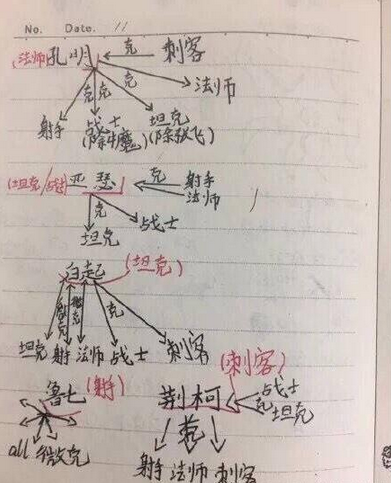 No. Date. 11
(法师)孔明 克 刺客
克 克 克 法师
射手 战士 坦克
(除钟馗)(除张飞)
(坦克/战士)亚瑟 克 射手
法师
克
坦克 战士
白起 (坦克)
微克 微克 克
坦克 射 法师 战士 刺客
(刺客)
鲁七 (射) 荆柯 克 战士
坦克
克
all 微克 射手 法师 刺客